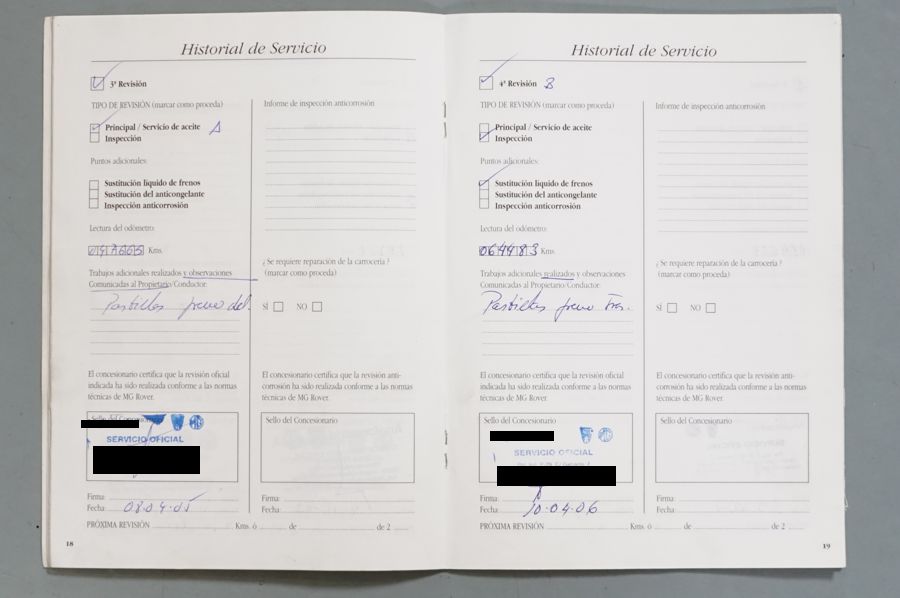 Historial de Servicio
3ª Revisión
TIPO DE REVISIÓN (marcar como proceda)
Principal / Servicio de aceite A
Inspección
Puntos adicionales:
Sustitución líquido de frenos
Sustitución del anticongelante
Inspección anticorrosión
Lectura del odómetro:
Kms.
Trabajos adicionales realizados y observaciones
Comunicadas al Propietario/Conductor:
Pastillas freno del.
El concesionario certifica que la revisión oficial
indicada ha sido realizada conforme a las normas
técnicas de MG Rover.
Sello del Concesionario
SERVICIO OFICIAL
Firma:
Fecha: 08.04.05
PRÓXIMA REVISIÓN Kms. ó de de 2
18
Informe de inspección anticorrosión
¿Se requiere reparación de la carrocería?
(marcar como proceda)
SÍ NO
El concesionario certifica que la revisión anti-
corrosión ha sido realizada conforme a las normas
técnicas de MG Rover.
Sello del Concesionario
Historial de Servicio
4ª Revisión B
TIPO DE REVISIÓN (marcar como proceda)
Principal / Servicio de aceite
Inspección
Puntos adicionales:
Sustitución líquido de frenos
Sustitución del anticongelante
Inspección anticorrosión
Lectura del odómetro:
064483 Kms.
Trabajos adicionales realizados y observaciones
Comunicadas al Propietario/Conductor:
Pastillas freno Tras.
El concesionario certifica que la revisión oficial
indicada ha sido realizada conforme a las normas
técnicas de MG Rover.
Sello del Concesionario
SERVICIO OFICIAL
Firma:
Fecha: 10.04.06
PRÓXIMA REVISIÓN Kms. ó de de 2
Informe de inspección anticorrosión
¿Se requiere reparación de la carrocería?
(marcar como proceda)
SÍ NO
El concesionario certifica que la revisión anti-
corrosión ha sido realizada conforme a las normas
técnicas de MG Rover.
Sello del Concesionario
19